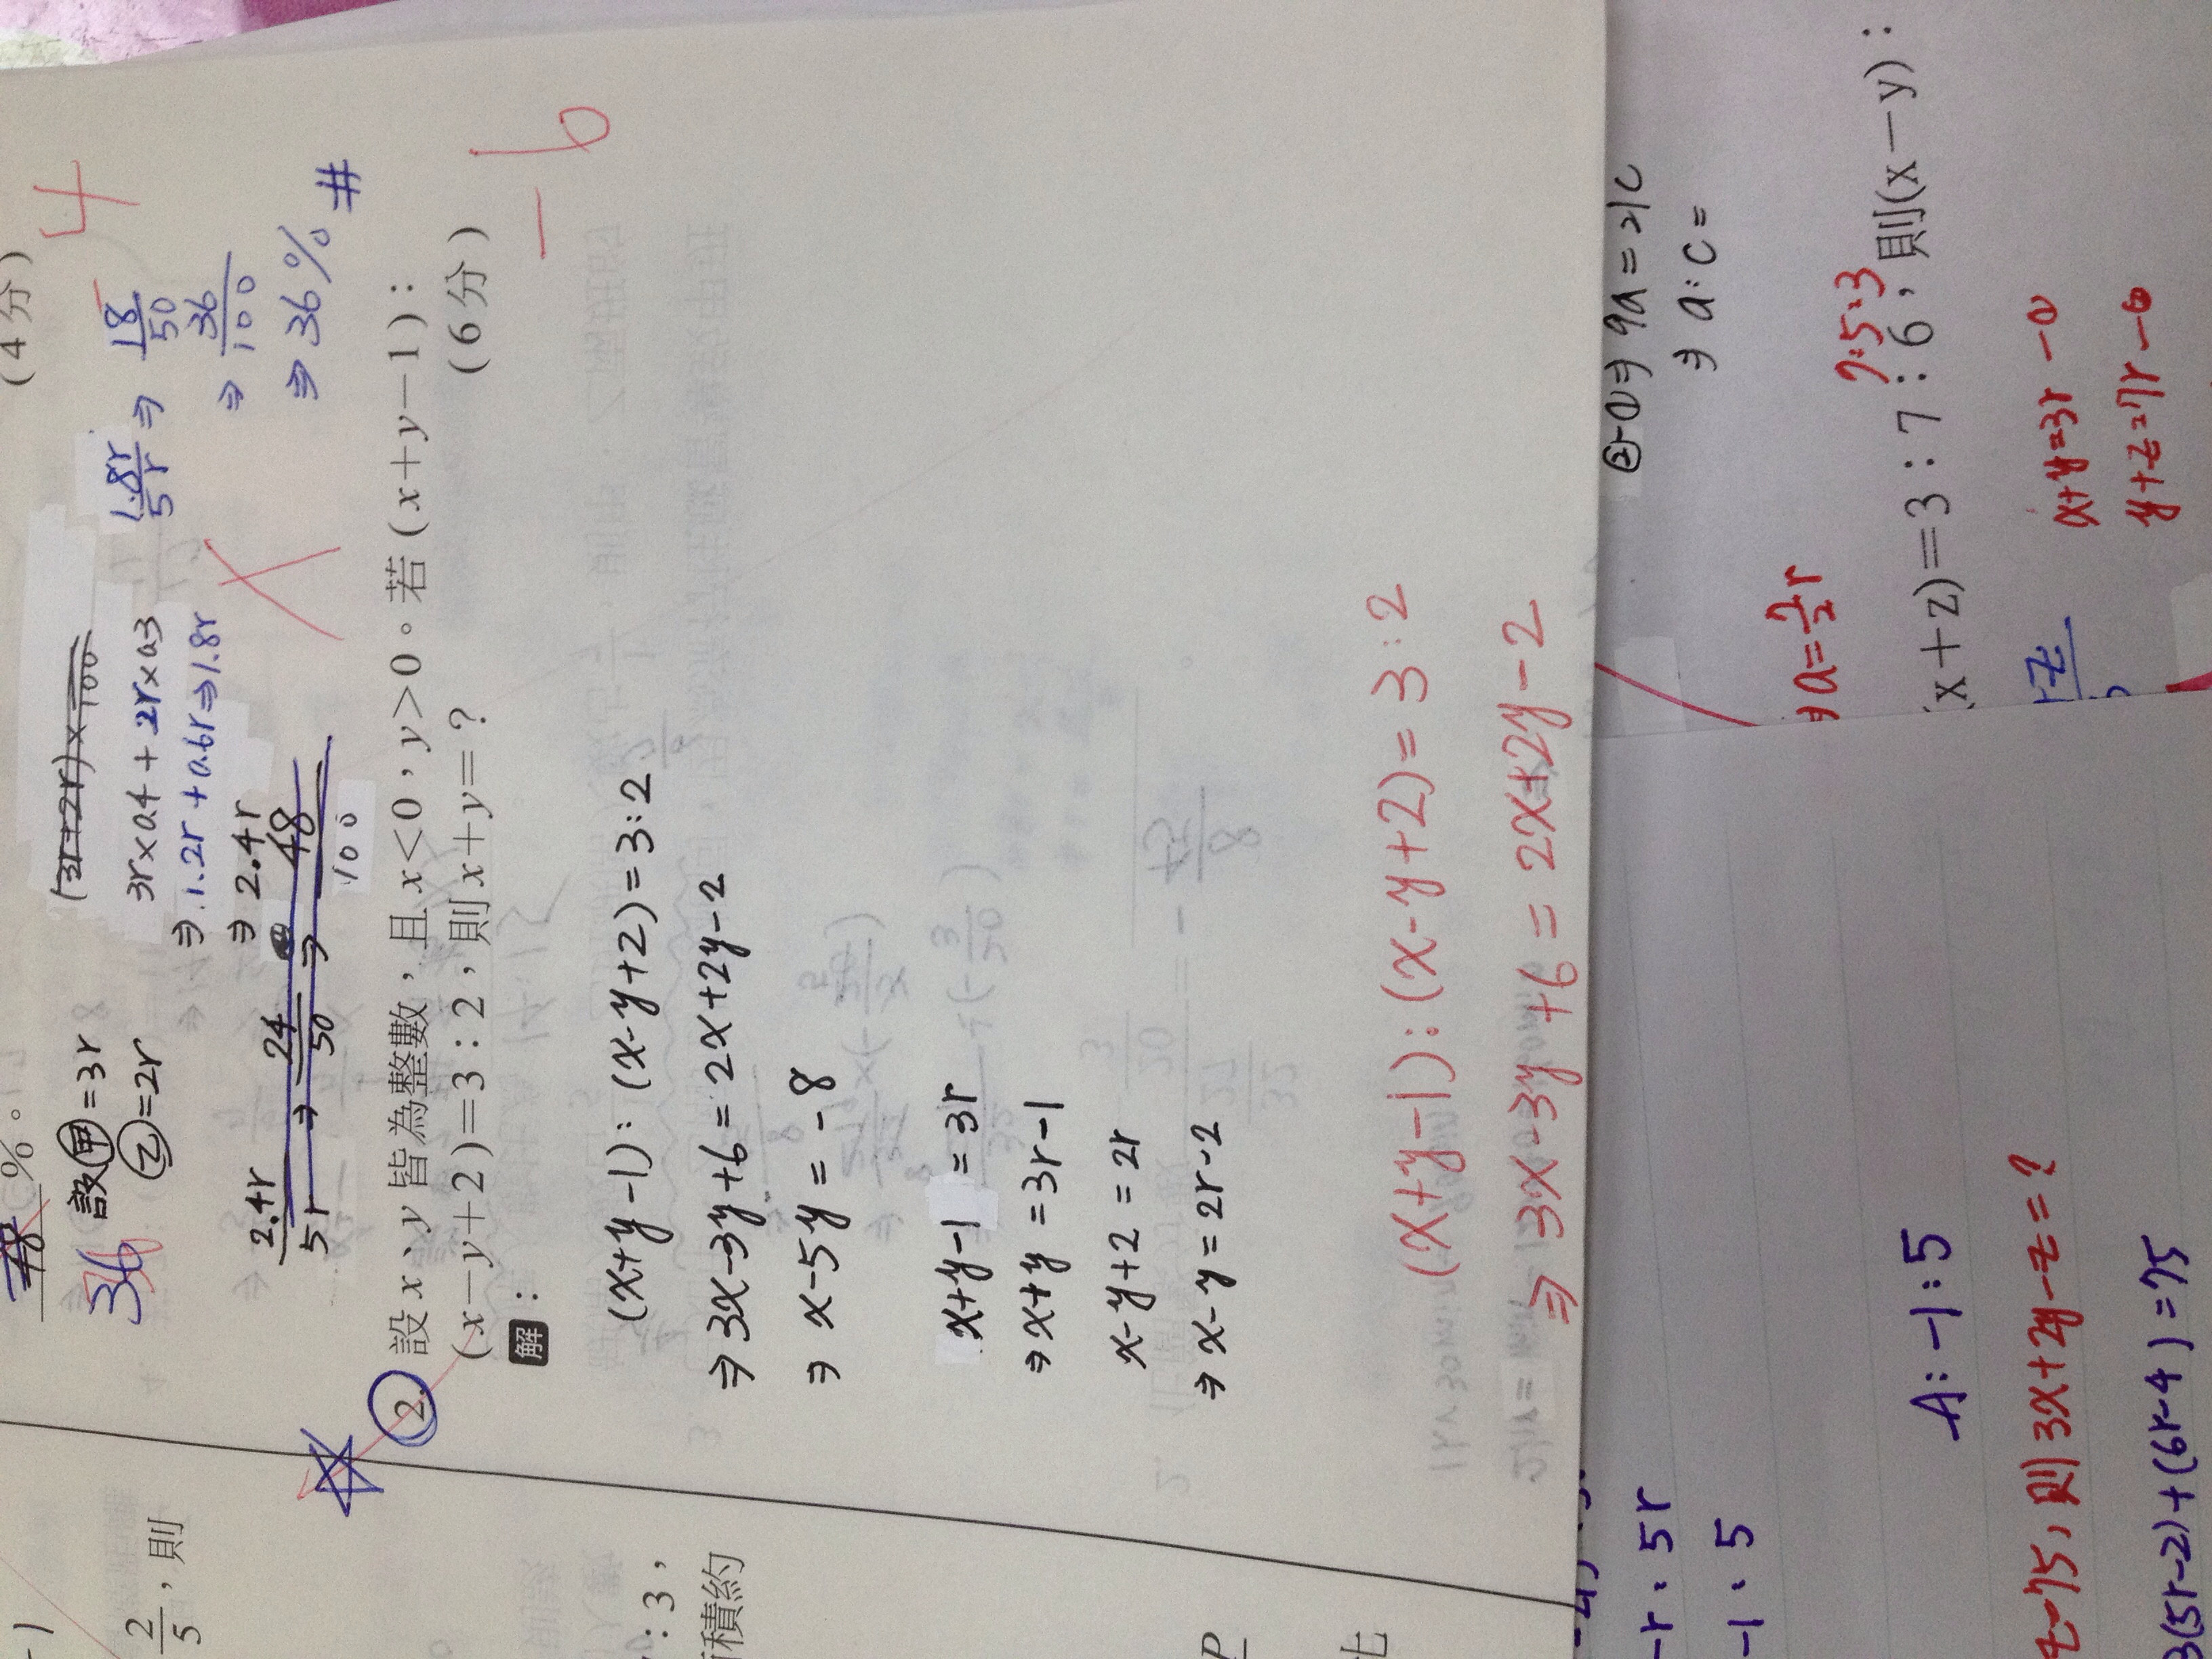 (4分)
4
%。
48
36
設甲=3r
乙=2r
(3r+2r)×100
3r×0.4+2r×0.3
⇒1.2r+0.6r⇒1.8r
⇒2.4r
2.4r/5r ⇒ 24/50 ⇒ 48/100
1.8r/5r ⇒ 18/50
⇒ 36/100
⇒ 36% #
2. 設x、y皆為整數,且x<0,y>0。若(x+y-1):
(x-y+2)=3:2,則x+y=? (6分)
-6
解:
(x+y-1):(x-y+2)=3:2
⇒3x-3y+6=2x+2y-2
⇒x-5y=-8
x+y-1=3r
⇒x+y=3r-1
x-y+2=2r
⇒x-y=2r-2
(x+y-1):(x-y+2)=3:2
⇒3x-3y+6=2x+2y-2
2/5,則
:3,
積約
②-①⇒9a=21c
⇒a:c=
⇒a=7/2r
7:5:3
(x+z)=3:7:6,則(x-y):
x+y=3r-①
y+z=7r-②
-r:5r
-1:5
A:-1:5
z=75,則3x+2y-z=?
3(5r-2)+(6r-4)=75